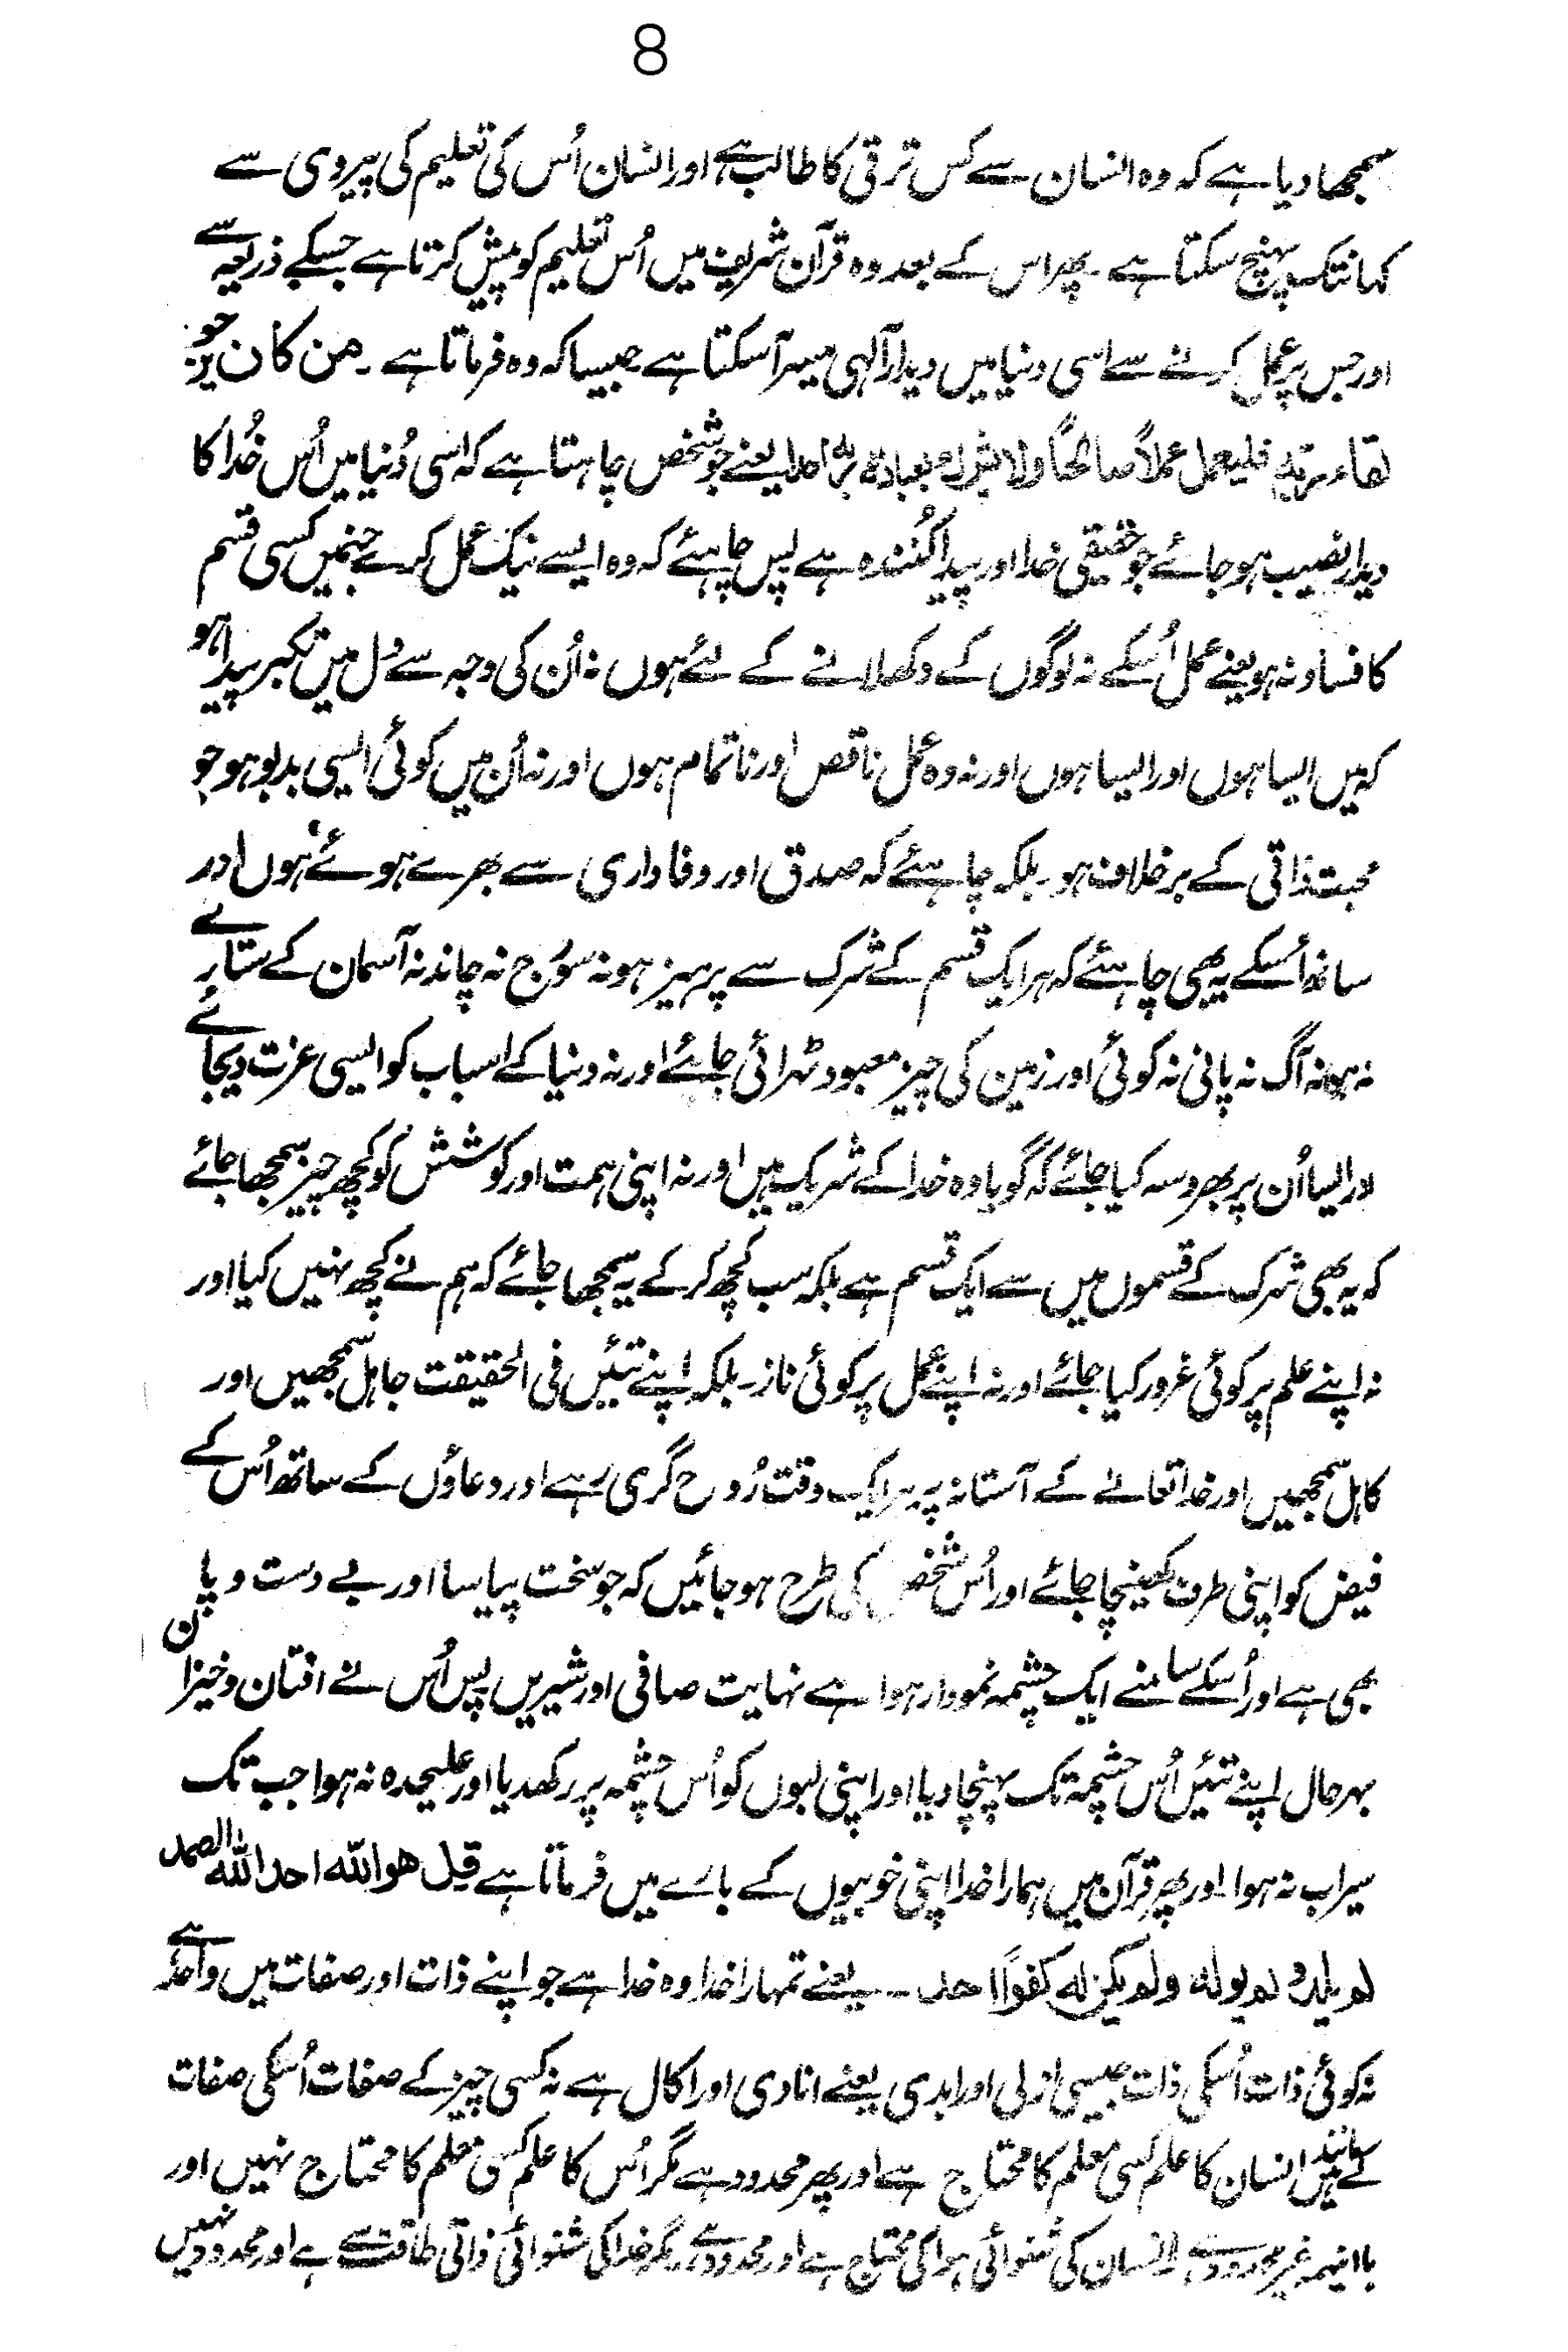 8
سمجھا دیا ہے کہ وہ انسان سے کس ترقی کا طالب ہے اور انسان اُس کی تعلیم کی پیروی سے
کہانتک پہنچ سکتا ہے۔ پھر اس کے بعد وہ قرآن شریف میں اُس تعلیم کو پیش کرتا ہے جسکے ذریعہ سے
اور جس پر عمل کرنے سے اسی دنیا میں دیدار الٰہی میسر آسکتا ہے جیسا کہ وہ فرماتا ہے۔ من کان یرجو
لقاء ربّہ فلیعمل عملاً صالحًا ولا یشرک بعبادۃ ربّہ احدا یعنے جو شخص چاہتا ہے کہ اسی دُنیا میں اُس خُدا کا
دیدار نصیب ہو جائے جو حقیقی خدا اور پیدا کُنندہ ہے پس چاہئے کہ وہ ایسے نیک عمل کرے جنمیں کسی قسم
کا فساد نہ ہو یعنے عمل اُسکے نہ لوگوں کے دکھلانے کے لئے ہوں نہ اُن کی وجہ سے دل میں تکبر پیدا ہو
کہ میں ایسا ہوں اور ایسا ہوں اور نہ وہ عمل ناقص اور ناتمام ہوں اور نہ اُن میں کوئی ایسی بدبو ہو جو
محبت ذاتی کے برخلاف ہو۔ بلکہ چاہئے کہ صدق اور وفاداری سے بھرے ہوئے ہوں اور
ساتھ اُسکے یہ بھی چاہئے کہ ہر ایک قسم کے شرک سے پرہیز ہو نہ سوُرج نہ چاند نہ آسمان کے ستارے
نہ ہوا نہ آگ نہ پانی نہ کوئی اور زمین کی چیز معبود ٹہرائی جائے اور نہ دنیا کے اسباب کو ایسی عزت دیجائے
اور ایسا اُن پر بھروسہ کیا جائے کہ گویا وہ خدا کے شریک ہیں اور نہ اپنی ہمت اور کوشش کو کچھ چیز سمجھا جائے
کہ یہ بھی شرک کے قسموں میں سے ایک قسم ہے بلکہ سب کچھ کر کے یہ سمجھا جائے کہ ہم نے کچھ نہیں کیا اور
نہ اپنے علم پر کوئی غرور کیا جائے اور نہ اپنے عمل پر کوئی ناز۔ بلکہ اپنے تئیں فی الحقیقت جاہل سمجھیں اور
کاہل سمجھیں اور خدا تعالےٰ کے آستانہ پہ ہر ایک وقت رُوح گری رہے اور دعاؤں کے ساتھ اُس کے
فیض کو اپنی طرف کھینچا جائے اور اُس شخص کی طرح ہو جائیں کہ جو سخت پیاسا اور بے دست و پا
بھی ہے اور اُسکے سامنے ایک چشمہ نمودار ہوا ہے نہایت صافی اور شیریں پس اُس نے افتان و خیزان
بہرحال اپنے تئیں اُس چشمہ تک پہنچا دیا اور اپنی لبوں کو اُس چشمہ پر رکھدیا اور علیحدہ نہ ہوا جب تک
سیراب نہ ہوا اور پھر قرآن میں ہمارا خدا اپنی خوبیوں کے بارے میں فرماتا ہے قل ھو اللہ احد اللہ الصمد
لم یلد و لم یولد ولم یکن لہ کفوًا احد۔ یعنے تمہارا خدا وہ خدا ہے جو اپنے ذات اور صفات میں واحد ہے
نہ کوئی ذات اُسکی ذات جیسی ازلی اور ابدی یعنے انادی اور اکال ہے نہ کسی چیز کے صفات اُسکی صفات
کے مانند ہیں انسان کا علم کسی معلم کا محتاج ہے اور پھر محدود ہے مگر اُس کا علم کسی معلم کا محتاج نہیں اور
باایں ہمہ غیر محدود ہے انسان کی شنوائی ہوا کی محتاج ہے اور محدود ہے مگر خدا کی شنوائی ذاتی طاقت سے ہے اور محدود نہیں